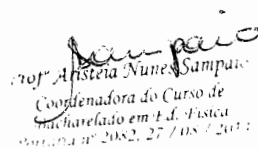 Sampaio
Aristeia Nunes Sampaio
Coordenadora do Curso de
Bacharelado em Ed. Física
Portaria nº 2082, 27 / 08 /